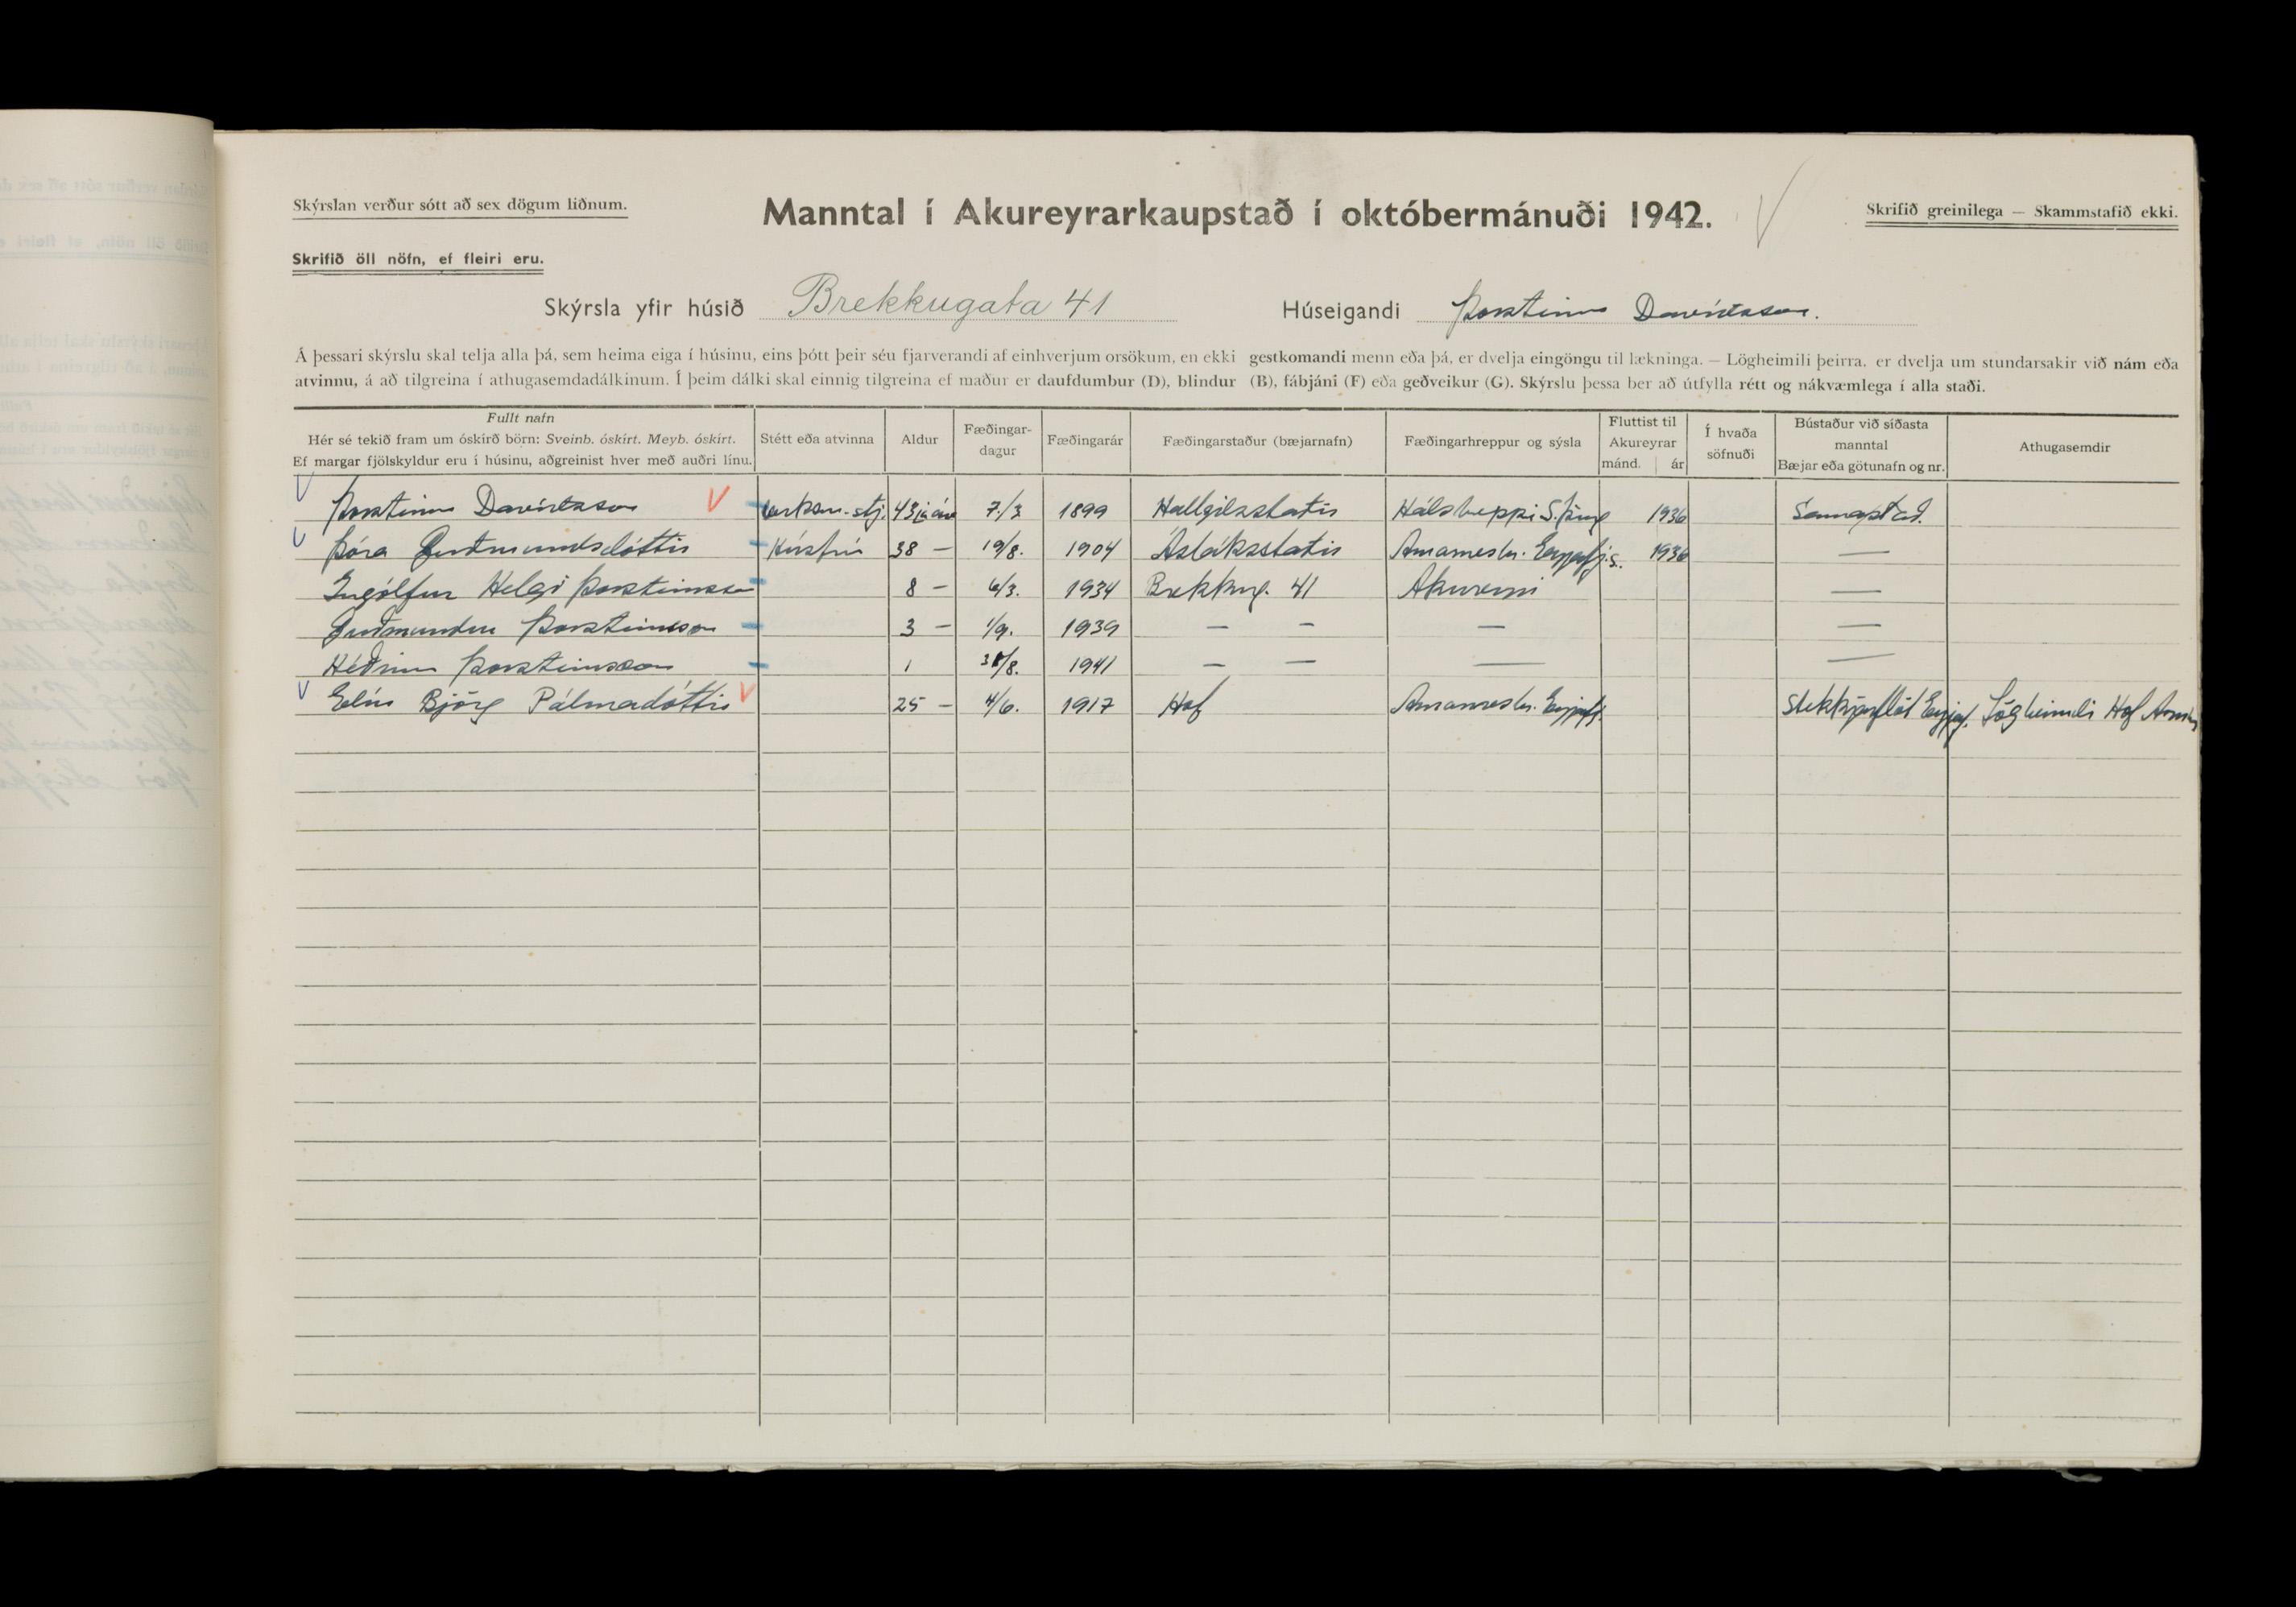 Skýrslan verður sótt að sex dögum liðnum.
Manntal í Akureyrarkaupstað í októbermánuði 1942.
Skrifið greinilega — Skammstafið ekki.
Skrifið öll nöfn, ef fleiri eru.
Skýrsla yfir húsið Brekkugata 41 Húseigandi Þorsteinn Davíðsson.
Á þessari skýrslu skal telja alla þá, sem heima eiga í húsinu, eins þótt þeir séu fjarverandi af einhverjum orsökum, en ekki gestkomandi menn eða þá, er dvelja eingöngu til lækninga. — Lögheimili þeirra, er dvelja um stundarsakir við nám eða
atvinnu, á að tilgreina í athugasemdadálkinum. Í þeim dálki skal einnig tilgreina ef maður er daufdumbur (D), blindur (B), fábjáni (F) eða geðveikur (G). Skýrslu þessa ber að útfylla rétt og nákvæmlega í alla staði.
Fullt nafn
Hér sé tekið fram um óskírð börn: Sveinb. óskírt. Meyb. óskírt.
Ef margar fjölskyldur eru í húsinu, aðgreinist hver með auðri línu.
Stétt eða atvinna
Aldur
Fæðingar-
dagur
Fæðingarár
Fæðingarstaður (bæjarnafn)
Fæðingarhreppur og sýsla
Fluttist til
Akureyrar
mánd. ár
Í hvaða
söfnuði
Bústaður við síðasta
manntal
Bæjar eða götunafn og nr.
Athugasemdir
Þorsteinn Davíðsson verksm.-stj. 43 ja ára 7/3 1899 Hallgilsstatir Hálshreppi S. Þing 1936 Samastað.
Þóra Guðmundsdóttir Húsfrú 38 — 19/8. 1904 Ásláksstatir Arnarneshr. Eyjafj.s. 1936 —
Ingólfur Helgi Þorsteinsson 8 — 6/3. 1934 Brekkug. 41 Akureyri —
Guðmundur Þorsteinsson 3 — 1/9. 1939 — — — —
Héðinn Þorsteinsson 1 /8. 1941 — — — —
Elín Björg Pálmadóttir 25 — 4/6. 1917 Hof Arnarneshr. Eyjafj. Stekkjarflöt Eyjaf. Lögheimili Hof